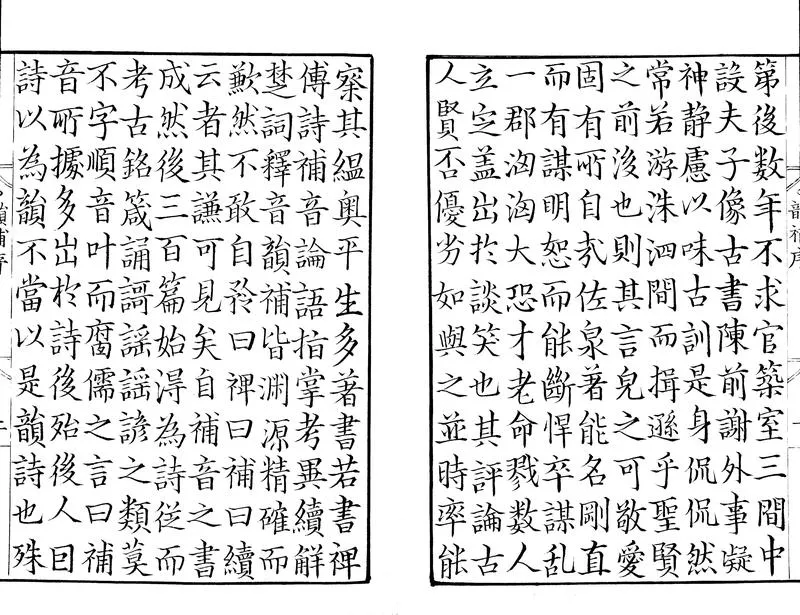 第後數年不求官築室三間中
設夫子像古書陳前謝外事凝
神靜慮以味古訓是身侃侃然
常若游洙泗間而揖遜乎聖賢
之前後也則其言皃之可敬愛
固有所自㢤佐泉著能名剛直
而有謀明恕而能斷悍卒謀亂
一郡洶洶大恐才老命戮數人
立定盖出於談笑也其評論古
人賢否優劣如與之並時率能
韻補序
察其緼奧平生多著書若書裨
傅詩補音論語指掌考異續解
楚詞釋音韻補皆淵源精確而
歉然不敢自矜曰裨曰補曰續
云者其謙可見矣自補音之書
成然後三百篇始得為詩從而
考古銘箴誦謌謠謠諺之類莫
不字順音叶而腐儒之言曰補
音所據多出於詩後殆後人囙
詩以為韻不當以是韻詩也殊
韻補序